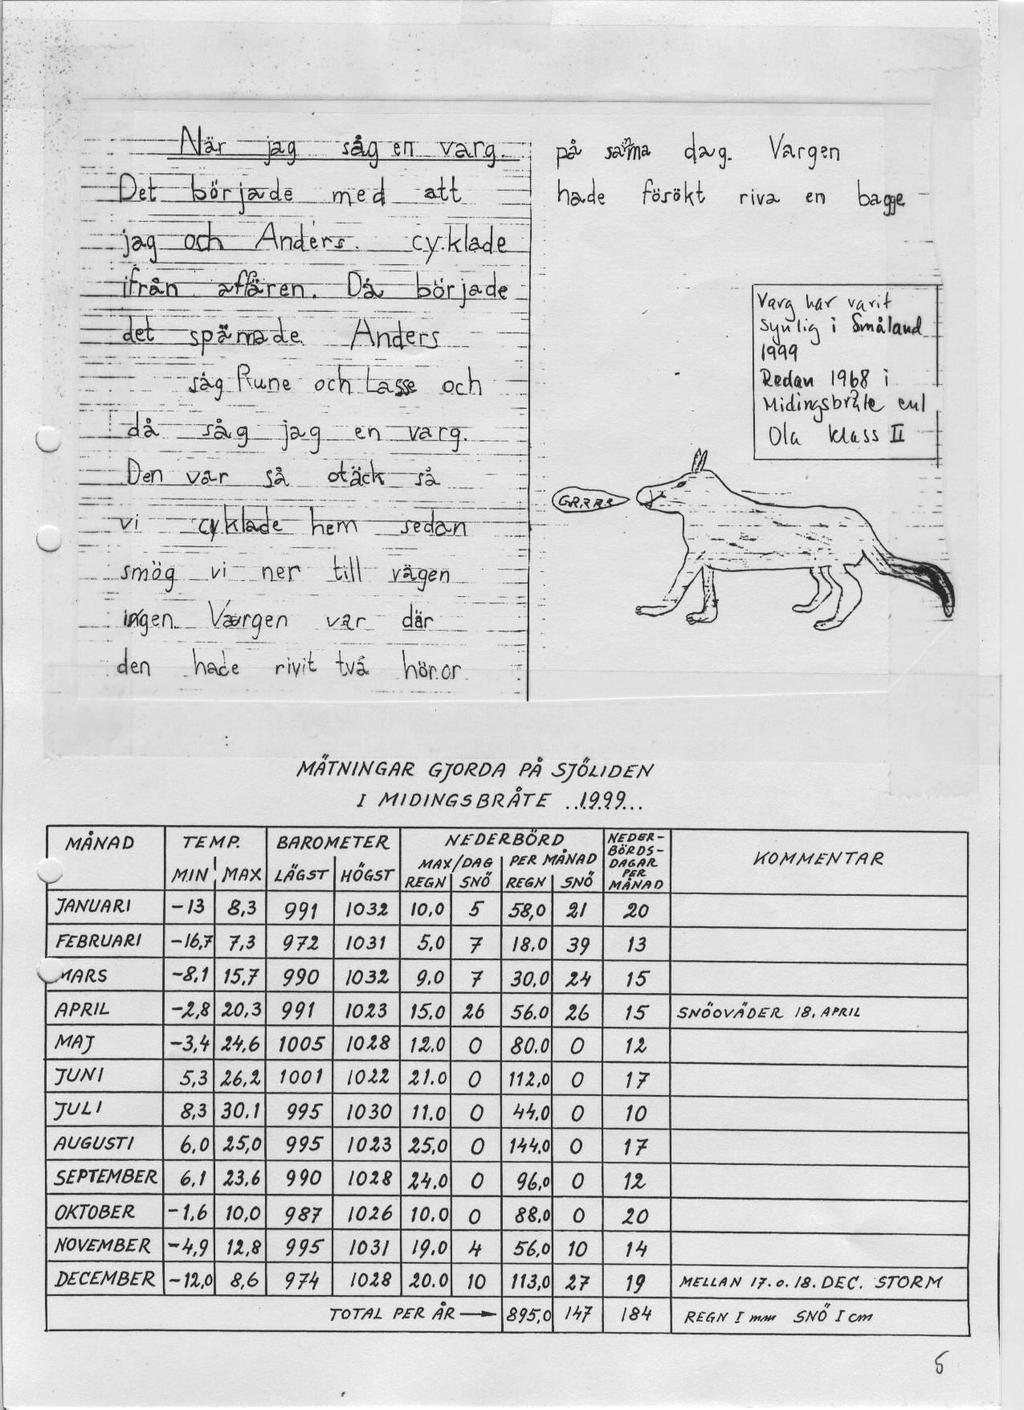 När jag såg en varg.
Det började med att
jag och Anders. cyklade
ifrån affären. Då började
det spännade. Anders
såg Rune och Lasse och
då såg jag en varg.
Den var så otäck så
vi cyklade hem sedan
smög vi ner till vägen
ingen. Vargen var där
den hade rivit två hönor
på samma dag. Vargen
hade försökt riva en bagge
Varg har varit
synlig i Småland
1999
Redan 1968 i
Midingsbråte enl
Ola klass II
GRRRR
MÄTNINGAR GJORDA PÅ SJÖLIDEN
I MIDINGSBRÅTE ..1999...
MÅNAD TEMP. BAROMETER NEDERBÖRD NEDER-BÖRDS-DAGAR PER MÅNAD KOMMENTAR
MIN MAX LÄGST HÖGST MAX/DAG PER MÅNAD
REGN SNÖ REGN SNÖ
JANUARI -13 8,3 991 1032 10,0 5 58,0 21 20
FEBRUARI -16,7 7,3 972 1031 5,0 7 18,0 39 13
MARS -8,1 15,7 990 1032 9,0 7 30,0 24 15
APRIL -2,8 20,3 991 1023 15,0 26 56.0 26 15 SNÖOVÄDER 18. APRIL
MAJ -3,4 24,6 1005 1028 12.0 0 80.0 0 12
JUNI 5,3 26,2 1001 1022 21.0 0 112,0 0 17
JULI 8,3 30.1 995 1030 11.0 0 44,0 0 10
AUGUSTI 6,0 25,0 995 1023 25,0 0 144,0 0 17
SEPTEMBER 6,1 23,6 990 1028 24.0 0 96,0 0 12
OKTOBER -1,6 10,0 987 1026 10.0 0 88,0 0 20
NOVEMBER -4,9 12,8 995 1031 19,0 4 56,0 10 14
DECEMBER -12,0 8,6 974 1028 20.0 10 113,0 27 19 MELLAN 17. o. 18. DEC. STORM
TOTAL PER ÅR → 895,0 147 184 REGN I mm SNÖ I cm
5